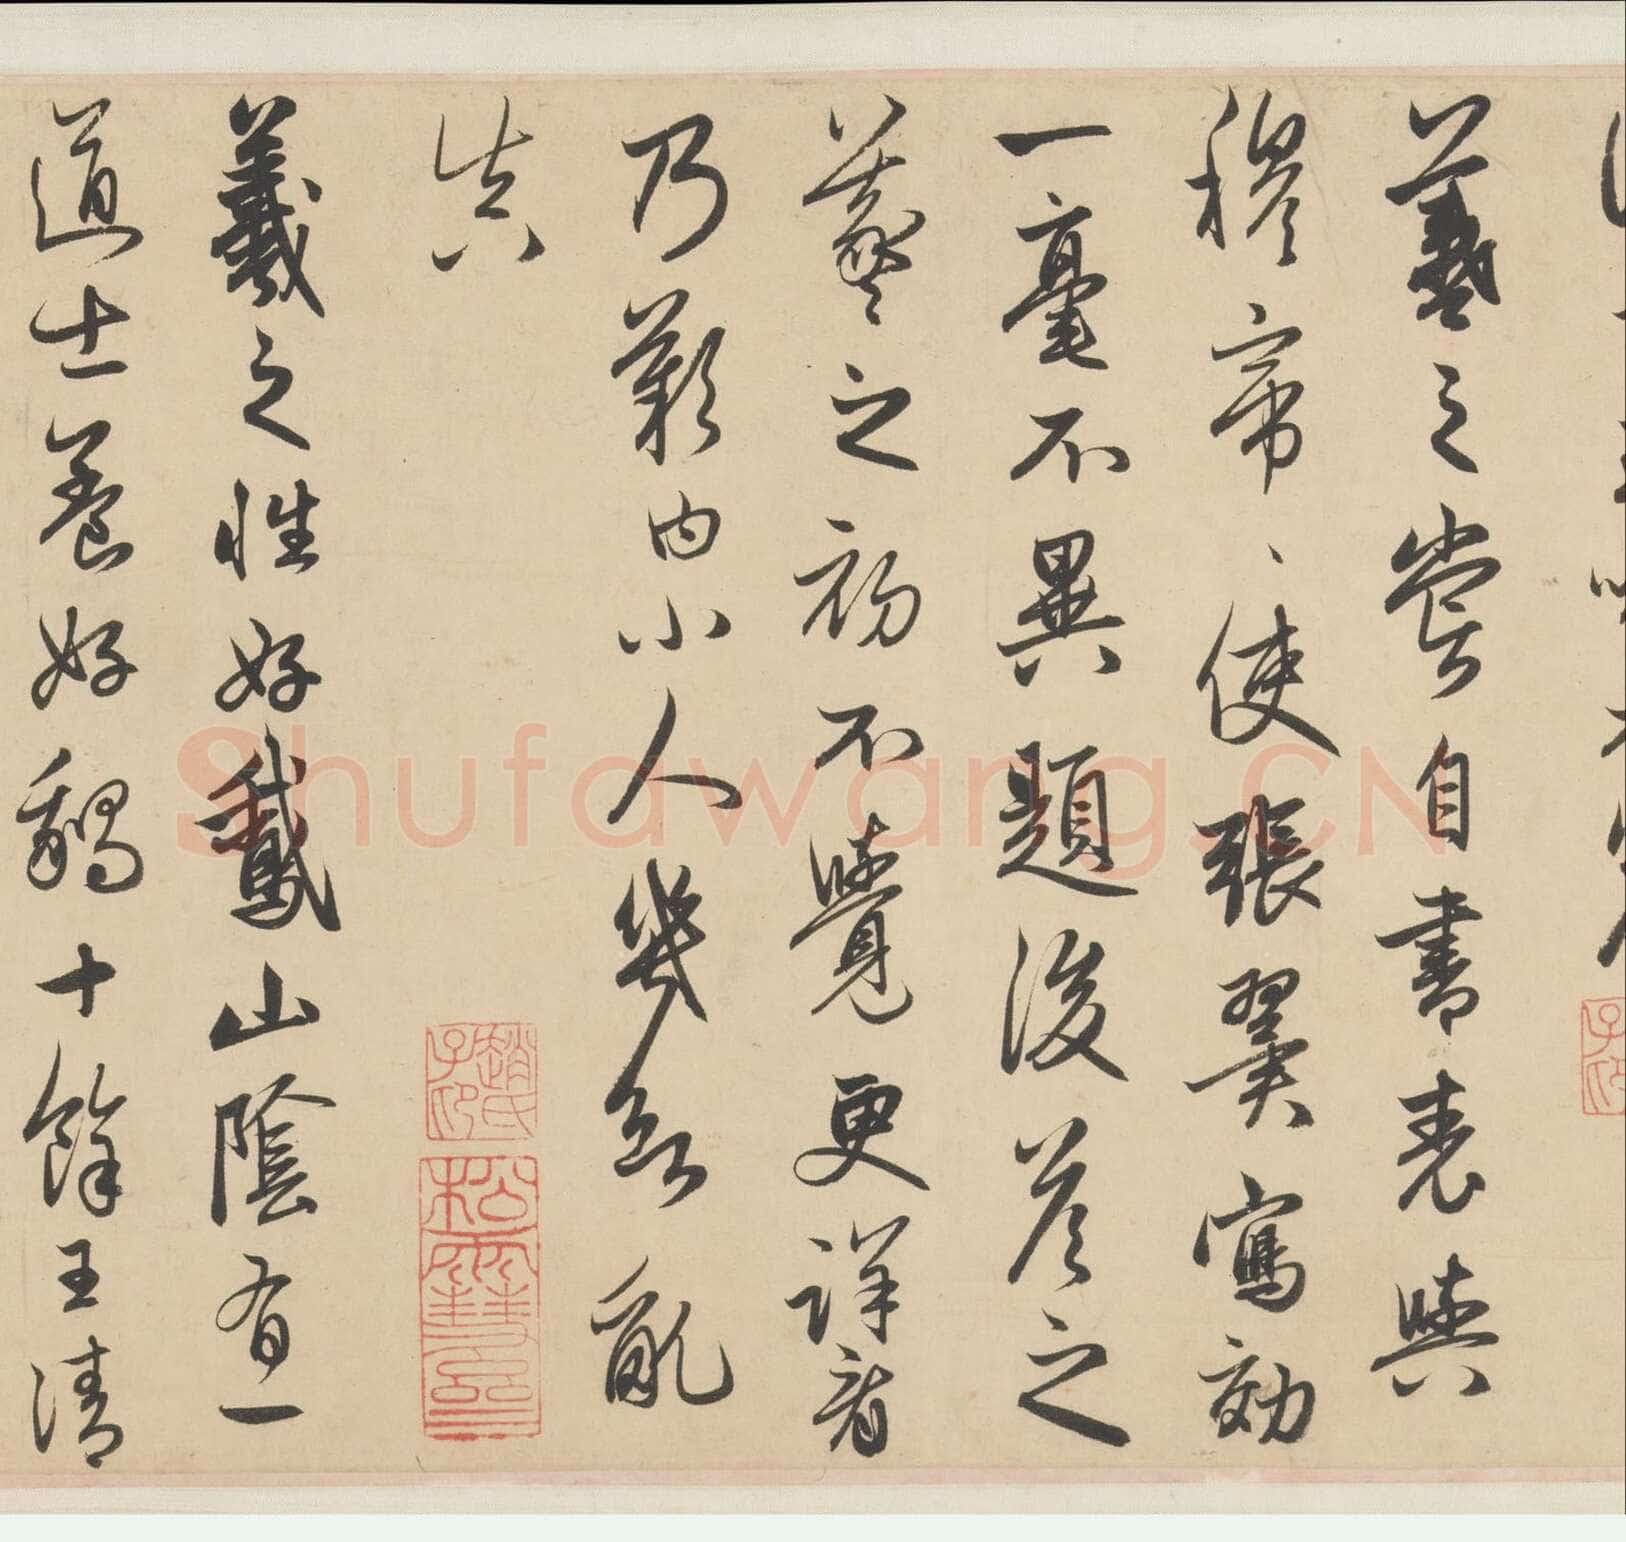 羲之嘗自書表與
穆帝、使張翼寫効
一毫不異題後答之
羲之初不覺更詳看
乃歎曰小人幾欲亂
真
羲之性好鵞山陰有一
道士養好鵝十餘王清
趙氏子印
松雪齋
Shufawang.CN